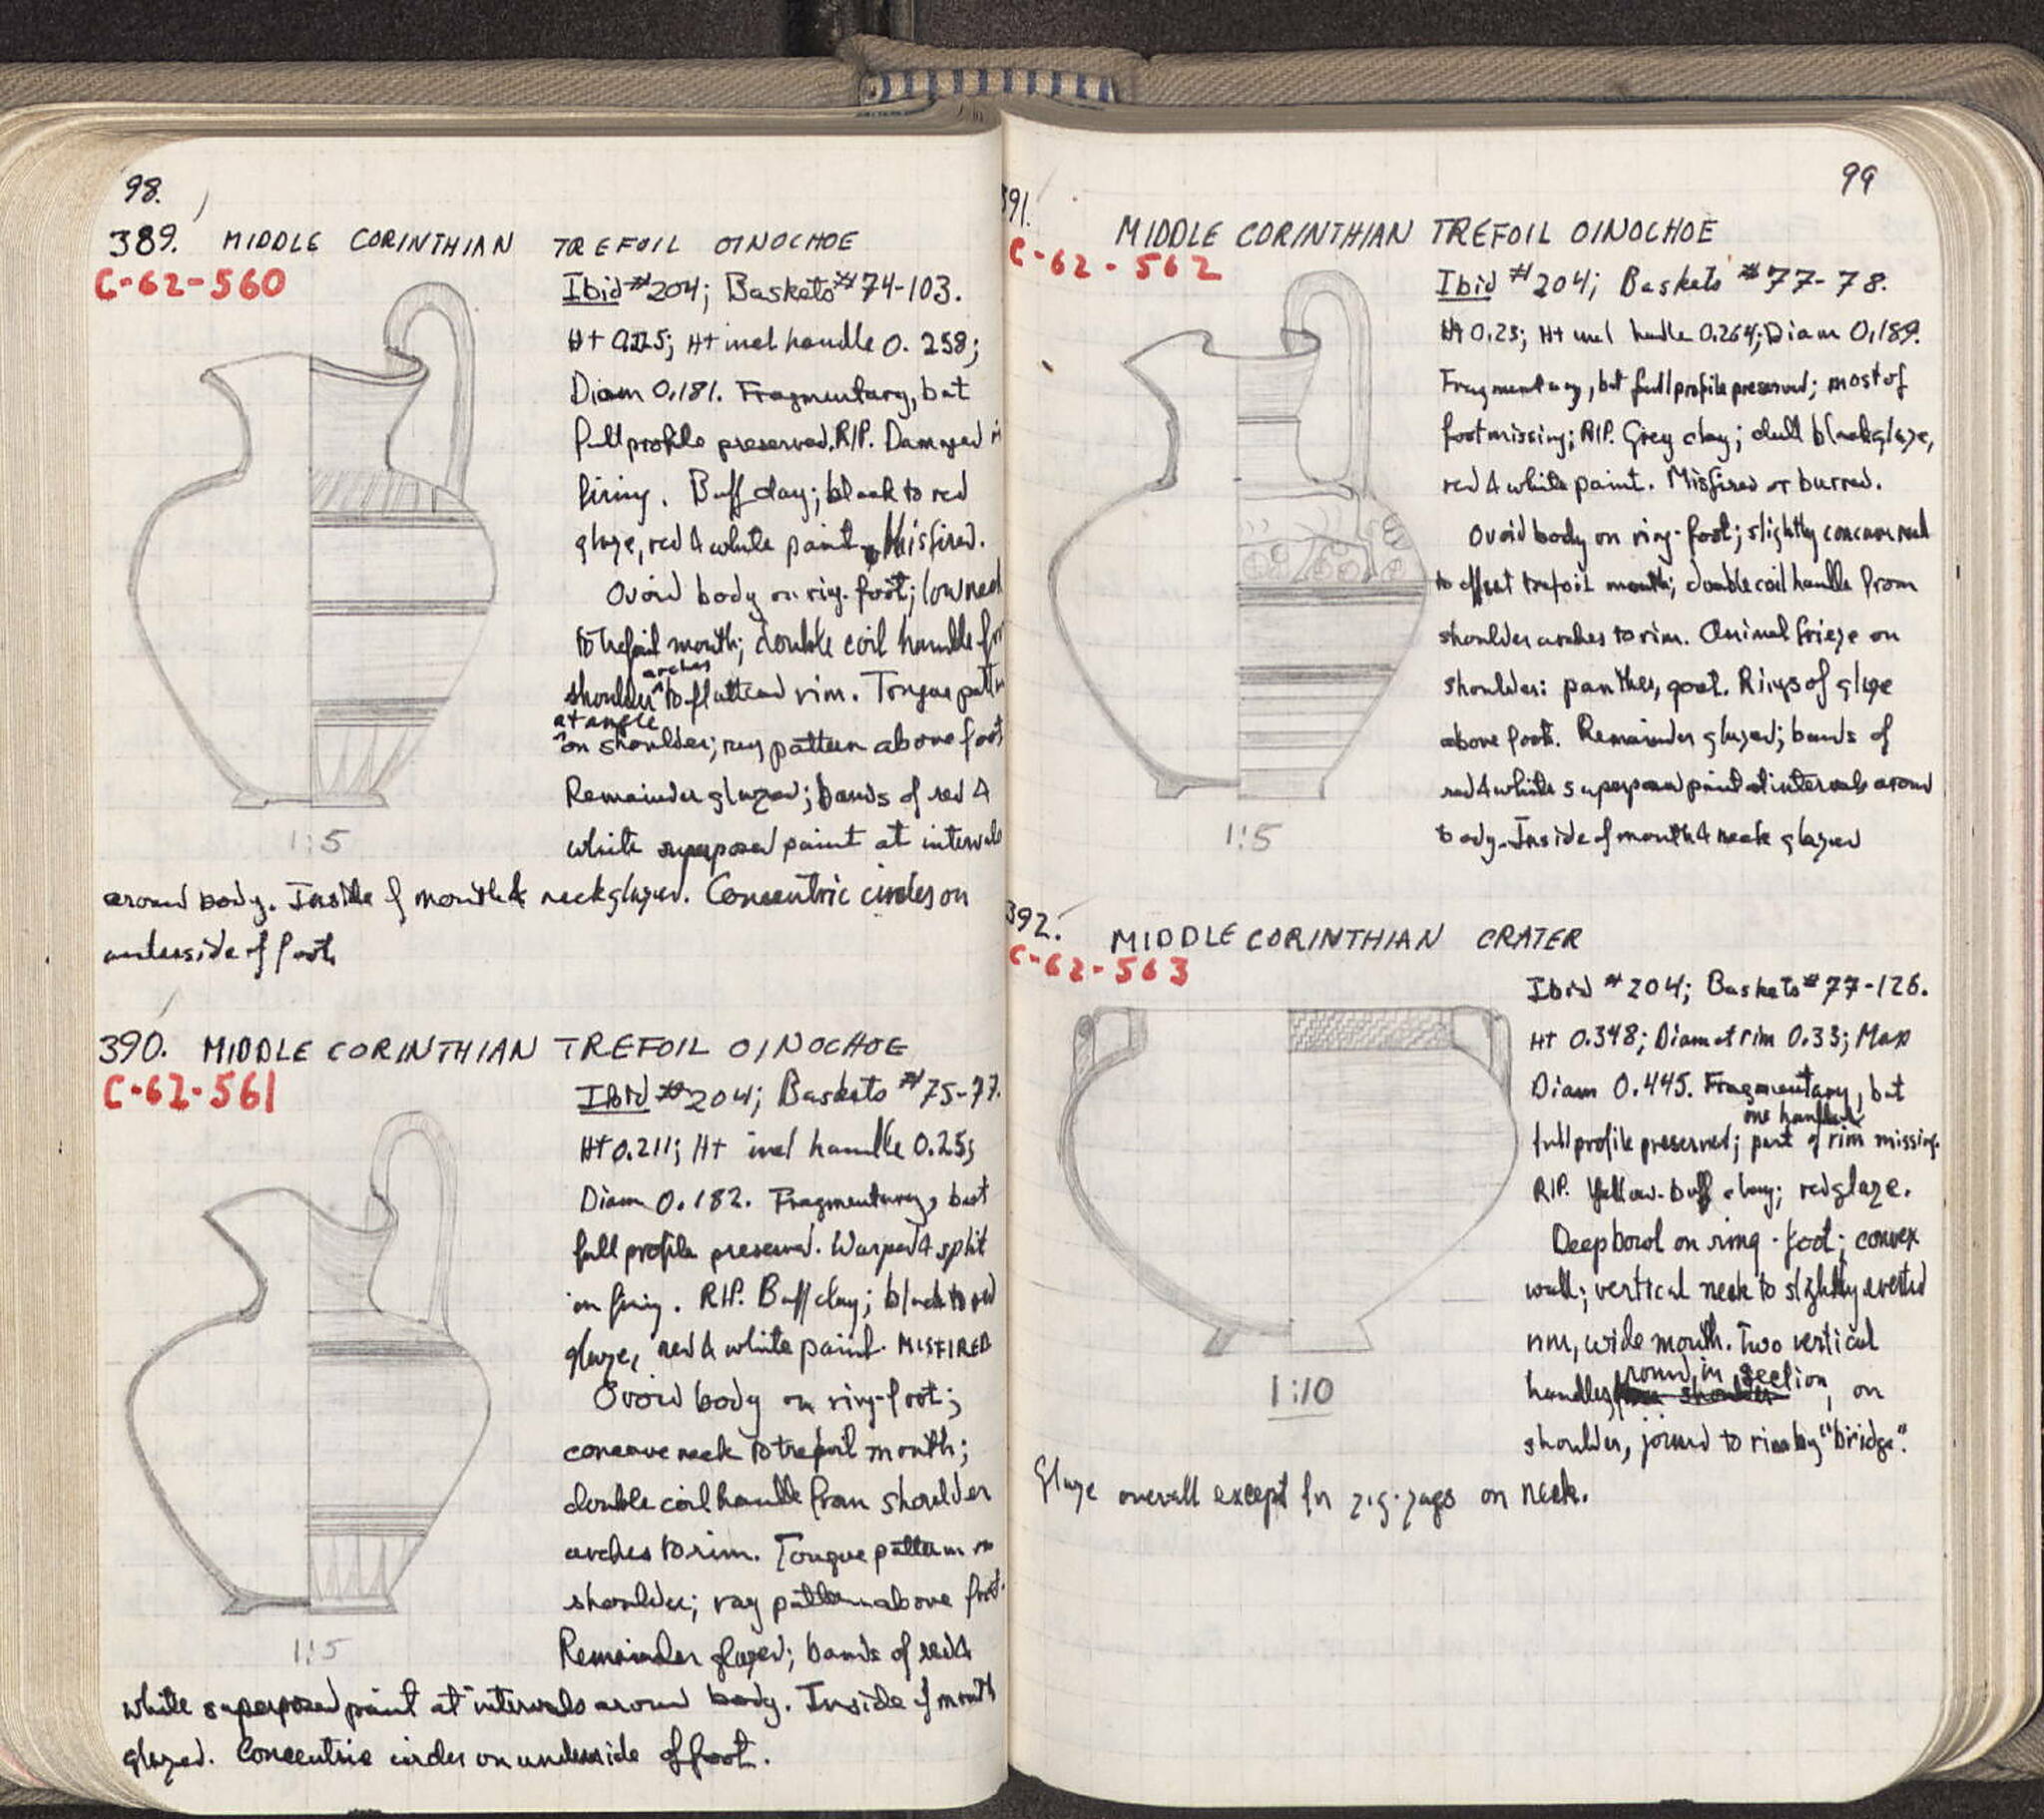 98.
389. MIDDLE CORINTHIAN TREFOIL OINOCHOE
C-62-560
Ibid #204; Baskets #74-103.
Ht incl handle 0.258;
Diam 0.181. Fragmentary, but
full profile preserved. RIP. Damaged
firing. Buff clay; black to red
glaze, red & white paint. Misfired.
Ovoid body on ring-foot; low neck
to trefoil mouth; double coil handle
shoulder ^arches to flattened rim. Tongue
^at angle on shoulder; ray pattern above foot
Remainder glazed; bands of red &
white superposed paint at intervals
around body. Inside of mouth & neck glazed. Concentric circles on
underside of foot.
1:5
390. MIDDLE CORINTHIAN TREFOIL OINOCHOE
C-62-561
Ibid #204; Baskets #75-77.
Ht 0.211; Ht incl handle 0.25;
Diam 0.182. Fragmentary, but
full profile preserved. Warped & split
in firing. RIP. Buff clay; black to red
glaze, red & white paint. MISFIRED
Ovoid body on ring-foot;
concave neck to trefoil mouth;
double coil handle from shoulder
arches to rim. Tongue pattern on
shoulder; ray pattern above foot.
Remainder glazed; bands of red &
white superposed paint at intervals around body. Inside of mouth
glazed. Concentric circles on underside of foot.
1:5
99
391. MIDDLE CORINTHIAN TREFOIL OINOCHOE
C-62-562
Ibid #204; Baskets #77-78.
Ht 0.23; Ht incl handle 0.264; Diam 0.189.
Fragmentary, but full profile preserved; most of
foot missing; RIP. Grey clay; dull black glaze,
red & white paint. Misfired or burned.
Ovoid body on ring-foot; slightly concave neck
to offset trefoil mouth; double coil handle from
shoulder arches to rim. Animal frieze on
shoulder: panther, goat. Rings of glaze
above foot. Remainder glazed; bands of
red & white superposed paint at intervals around
body. Inside of mouth & neck glazed
1:5
392. MIDDLE CORINTHIAN CRATER
C-62-563
Ibid #204; Baskets #77-126.
Ht 0.348; Diam at rim 0.33; Max
Diam 0.445. Fragmentary, but
full profile preserved; one handle & part of rim missing.
RIP. Yellow-buff clay; red glaze.
Deep bowl on ring-foot; convex
wall; vertical neck to slightly everted
rim, wide mouth. Two vertical
handles, round in section, on
shoulder, joined to rim by "bridge".
Glaze overall except for zig-zags on neck.
1:10